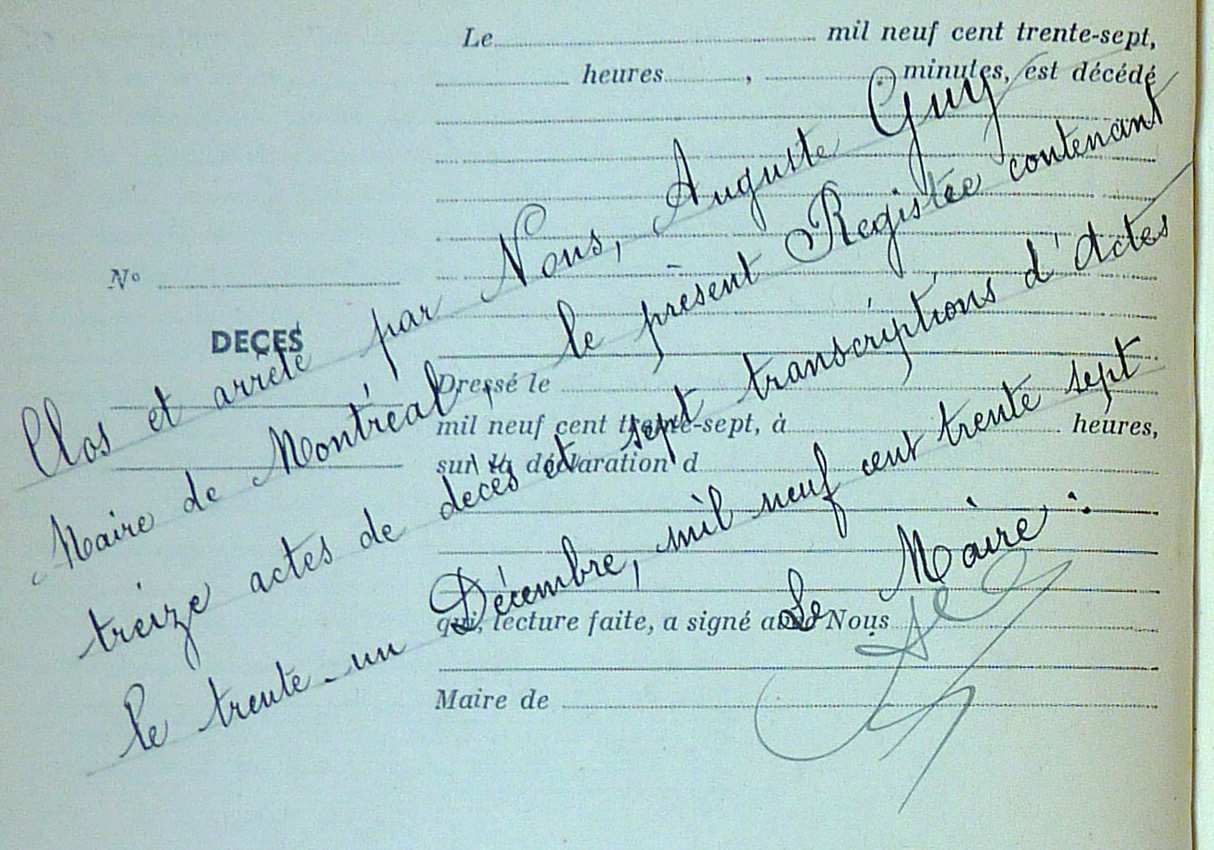 Le mil neuf cent trente-sept,
heures , minutes, est décédé
N°
DECES
Dressé le
mil neuf cent trente-sept, à heures,
sur la déclaration d
qui, lecture faite, a signé avec Nous
Maire de
Clos et arrêté par Nous, Auguste Guy
Maire de Montréal, le présent Registre contenant
treize actes de decès et sept transcriptions d'Actes
le trente-un Décembre, mil neuf cent trente sept
Le Maire :